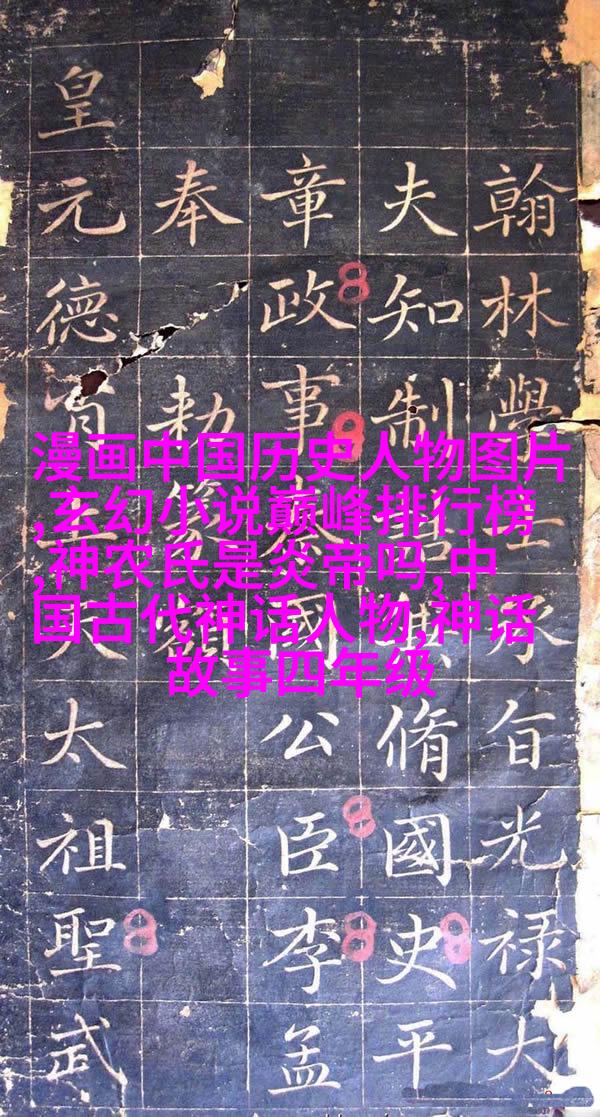 翰林學士承旨光禄大
夫知制誥兼脩國史平
章政事秦國公臣李孟
奉勑篆
皇元德天太祖聖武
漫画中国历史人物图片
,玄幻小说巅峰排行榜
,神农氏是炎帝吗,中
国古代神话人物,神话
故事四年级